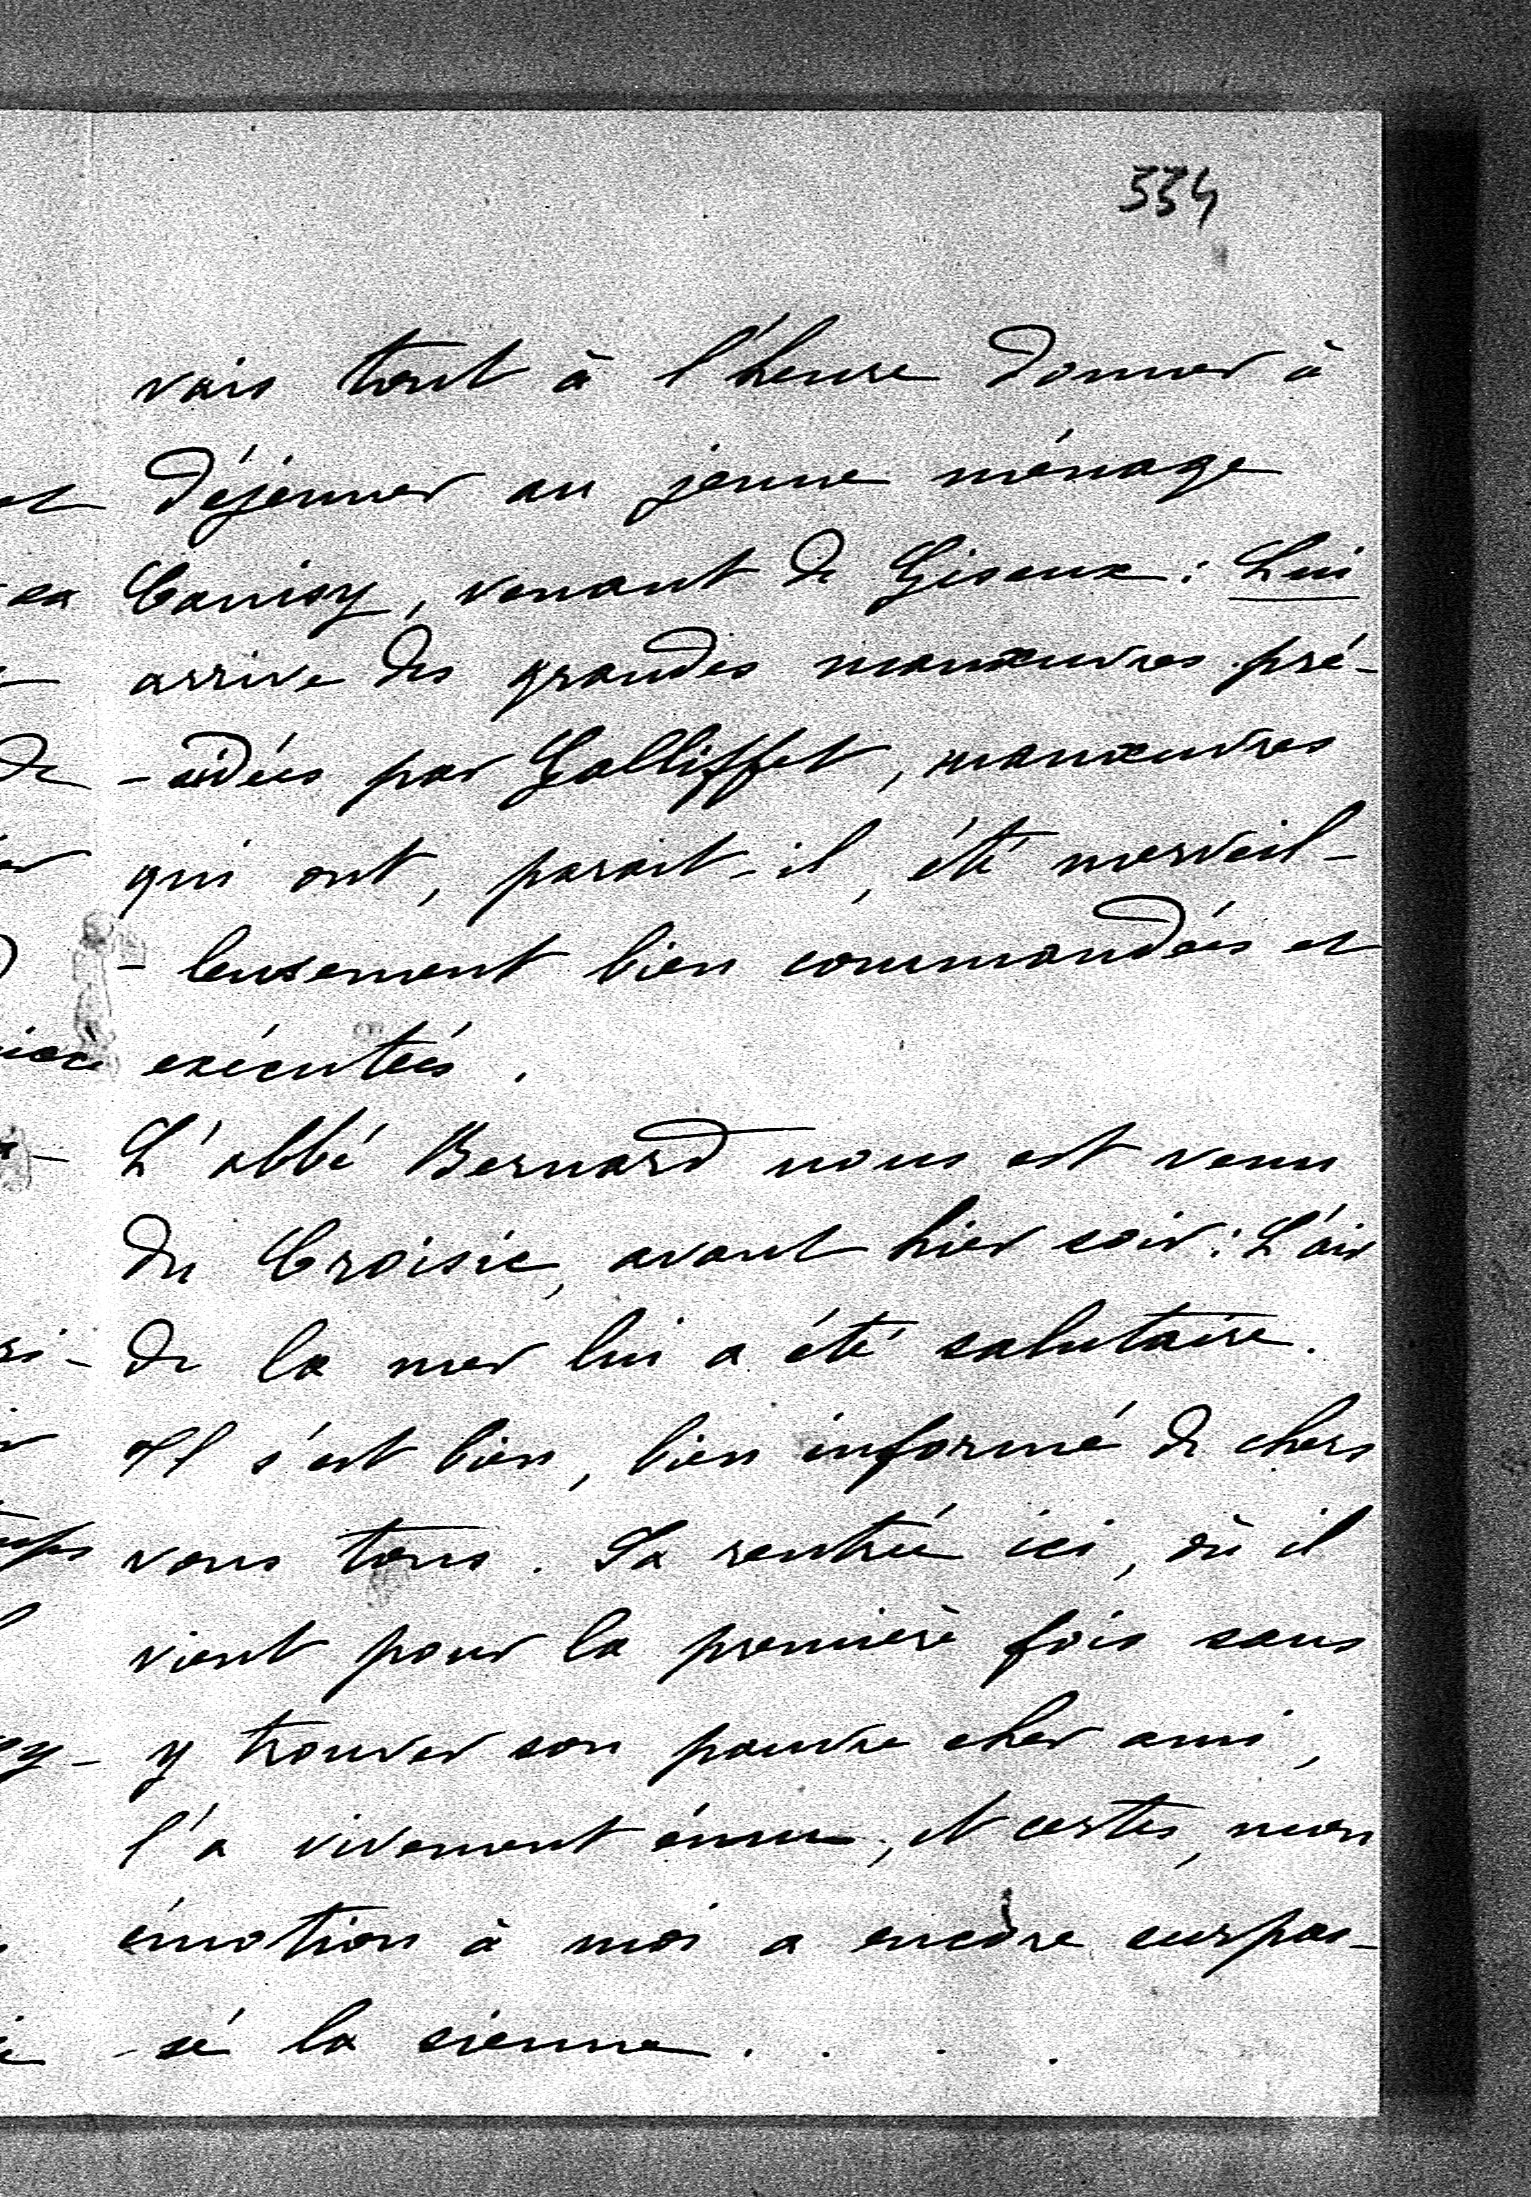 334
vais tout à l'heure donner à
déjeuner au jeune ménage
Canisy, venant de Giseux : Lui
arrive des grandes manœuvres pré-
-sidées par Galliffet, manœuvres
qui ont, parait-il, été merveil-
-leusement bien commandées et
exécutées.
L'abbé Bernard nous est venu
du Croisic, avant hier soir : L'air
de la mer lui a été salutaire.
Il s'est bien, bien informé de chers
vous tous. Sa rentrée ici, où il
vient pour la première fois sans
y trouver son pauvre cher ami,
l'a vivement ému, et certes, mon
émotion à moi a encore surpas-
-sé la sienne . . . .